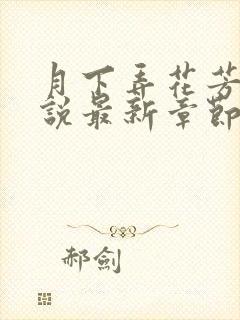 月下弄花芳
說最新章節
郝劍